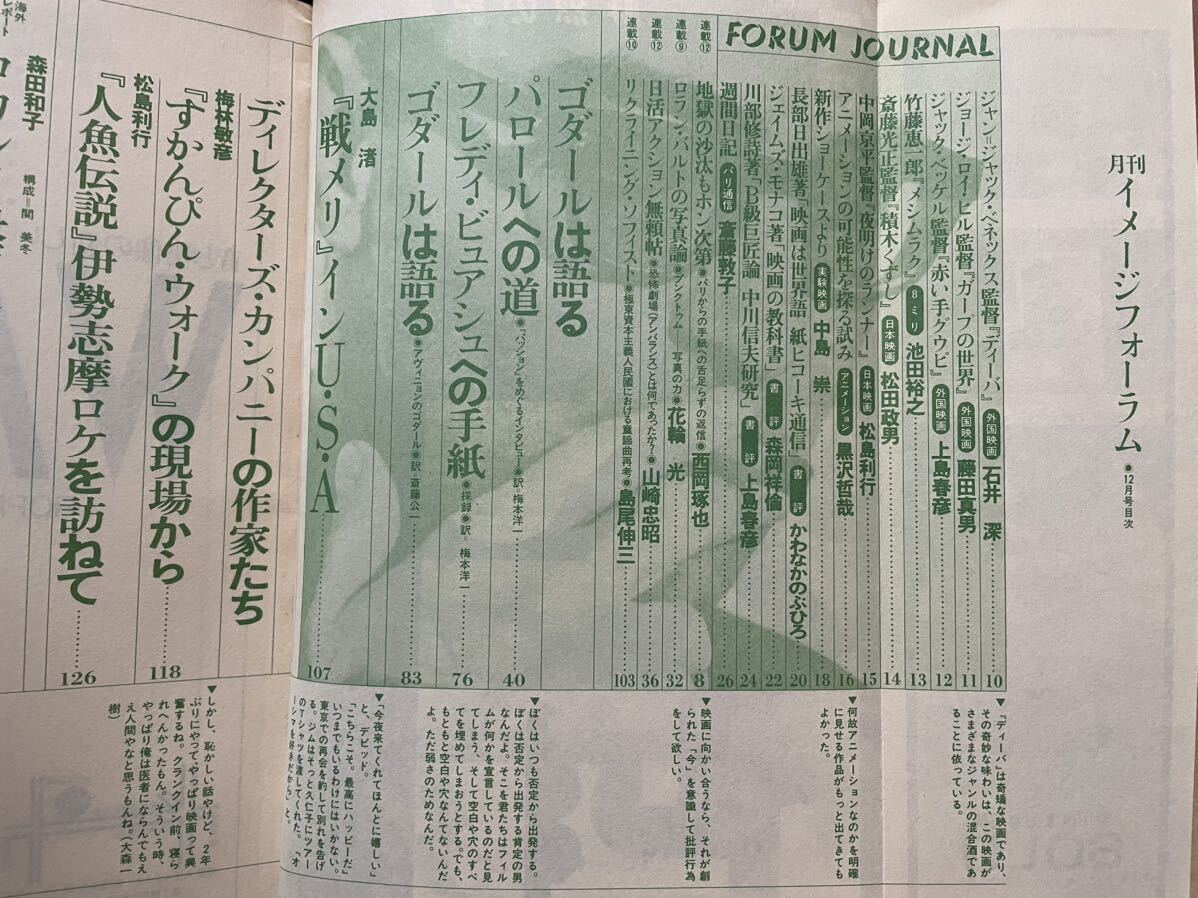 月刊 イメージフォーラム ●12月号目次
FORUM JOURNAL
ジャン=ジャック・ベネックス監督『ディーバ』 外国映画 石井 深 10
ジョージ・ロイ・ヒル監督『ガープの世界』 外国映画 藤田真男 11
ジャック・ベッケル監督『赤い手グウピ』 外国映画 上島春彦 12
竹藤恵一郎『メシムラク』 8ミリ 池田裕之 13
斎藤光正監督『積木くずし』 日本映画 松田政男 14
中岡京平監督『夜明けのランナー』 日本映画 松島利行 15
アニメーションの可能性を探る試み アニメーション 黒沢哲哉 16
新作ショーケースより 実験映画 中島 崇 18
長部日出雄著「映画は世界語 紙ヒコーキ通信」 書評 かわなかのぶひろ 20
ジェイムズ・モナコ著「映画の教科書」 書評 森岡祥倫 22
川部修詩著「B級巨匠論 中川信夫研究」 書評 上島春彦 24
週間日記 パリ通信 斎藤敦子 26
連載⑫ 地獄の沙汰もホン次第 ●パリからの手紙への舌足らずの返信 ●西岡琢也 8
連載⑨ ロラン・バルトの写真論 ●プンクトゥム——写真の力 ●花輪 光 32
連載⑫ 日活アクション無頼帖 ●恐怖劇場〈アンバランス〉とは何であったか? ●山崎忠昭 36
連載⑩ リクライニング・ソフィスト ●極東資本主義人民國における童謡曲再考 ●島尾伸三 103
ゴダールは語る
パロールへの道 ●『パッション』をめぐるインタビュー ●訳=梅本洋一 40
フレディ・ビュアシュへの手紙 ●採録 ●訳=梅本洋一 76
ゴダールは語る ●アヴィニョンのゴダール ●訳=斎藤公一 83
大島 渚
『戦メリ』インU・S・A 107
ディレクターズ・カンパニーの作家たち
梅林敏彦
『すかんぴん・ウォーク』の現場から 118
松島利行
『人魚伝説』伊勢志摩ロケを訪ねて 126
海外レポート
森田和子 構成=関 美冬
▼『ディーバ』は奇矯な映画であり、
その奇妙な味わいは、この映画が
さまざまなジャンルの混合酒であ
ることに依っている。
▼何故アニメーションなのかを明確
に見せる作品がもっと出てきても
よかった。
▼映画に向かい合うなら、それが創
られた「今」を意識して批評行為
をして欲しい。
▼ぼくはいつも否定から出発する。
ぼくは否定から出発する肯定の男
なんだよ。そこを君たちはフィル
ムが何かを宣言しているのだと見
てしまう、そして空白や穴のすべ
てを埋めてしまおうとする。でも、
もともと空白や穴なんてないんだ
よ。ただ弱さのためなんだ。
▼「今夜来てくれてほんとに嬉しい」
と、デビッド。
「こちらこそ。最高にハッピーだ」
いつまでもいるわけにはいかない。
東京での再会を約して別れを告げ
る。ジムはそっと久仁子にツアー
のTシャツを渡してくれた。「オ
シマを好きだから」と。
▼しかし、恥かしい話やけど、2年
ぶりにやって、やっぱり映画って興
奮するね。クランクイン前、寝ら
れへんかったもん。そういう時、
やっぱり俺は医者にならんでもえ
え人間やなと思うもんね。(大森一
樹)